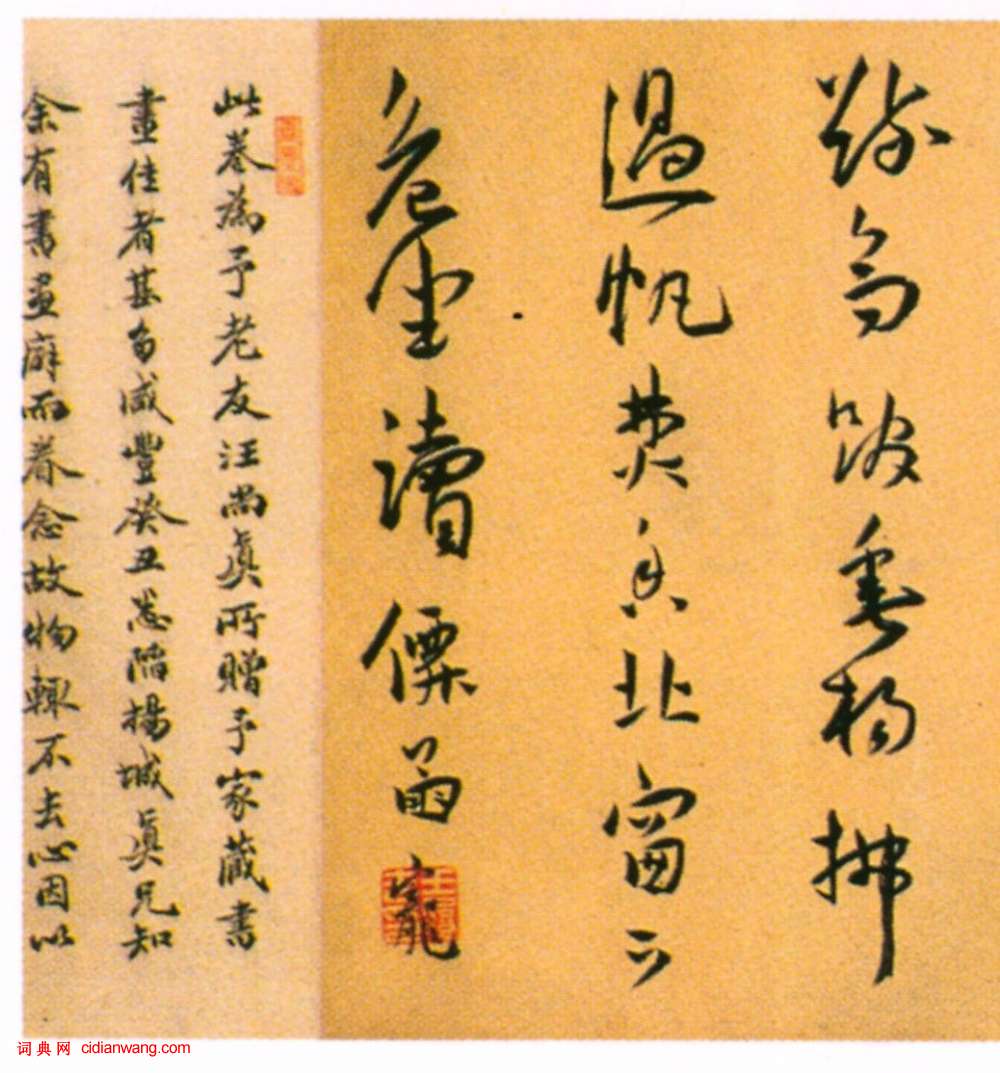 垂楊拂
過帆焚香北窗下
危坐讀僊
寵
此卷為予老友汪尚眞所贈予家藏書
畫佳者甚多咸豐癸丑悉陷揚城眞兄知
余有書畫癖而眷念故物輒不去心因以
词典网 cidianwang.com